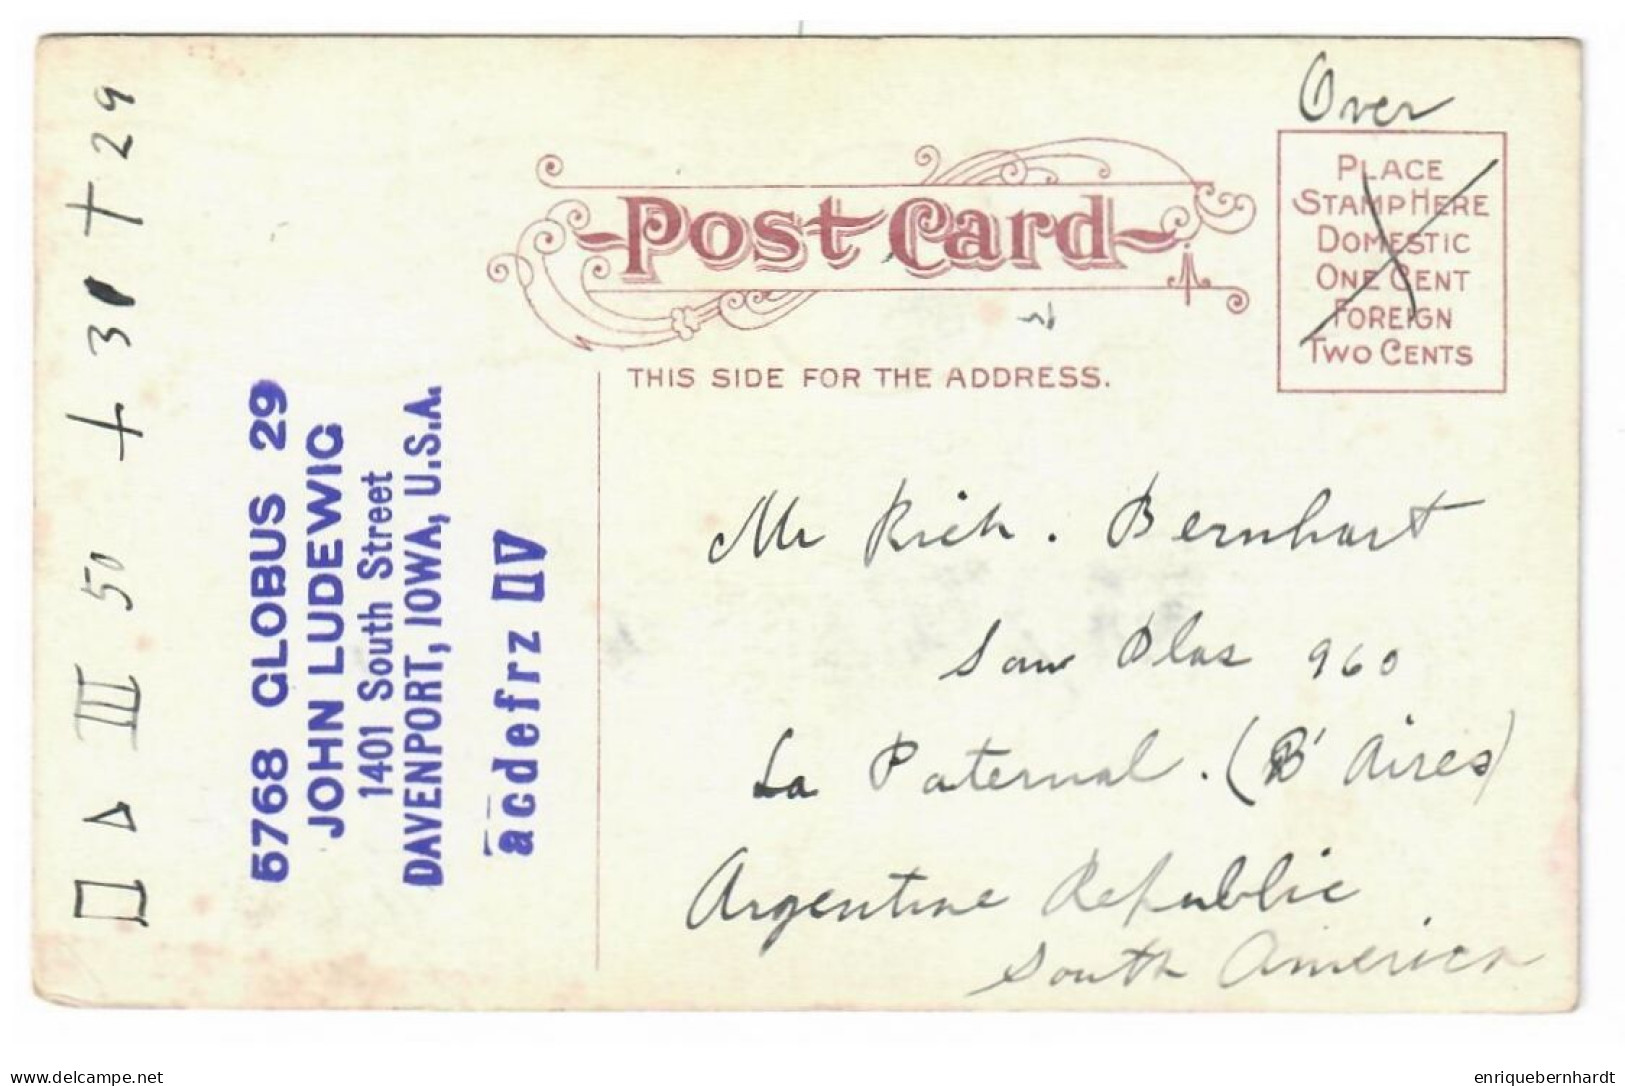 Over
PLACE
STAMP HERE
DOMESTIC
ONE CENT
FOREIGN
TWO CENTS
Post Card
THIS SIDE FOR THE ADDRESS.
□ △ III 50 + 30 + 29
5768 GLOBUS 29
JOHN LUDEWIG
1401 South Street
DAVENPORT, IOWA, U.S.A.
acdefrz □V
Mr Rich. Bernhart
San Blas 960
La Paternal. (B' Aires)
Argentine Republic
South America
www.delcampe.net
enriquebernhardt